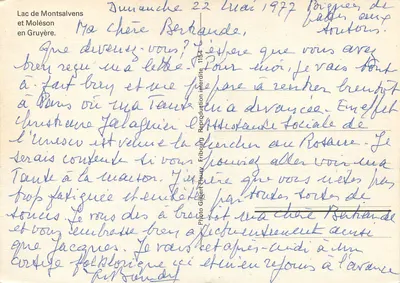 Lac de Montsalvens
et Moléson
en Gruyère.
Dimanche 22 Mai 1977
Poignées de
pattes aux
toutous.
Ma chère Bertrande,
Que devenez-vous? J'espère que vous avez
bien reçu ma lettre. Pour moi, je vais tout
à fait bien et me prépare à rentrer bientôt
à Paris où ma Tante m'a devancée. En effet
Christiane l'Assistante Sociale de
l'Unesco est venue la chercher au Rosaire. Je
serais contente si vous pouviez aller voir ma
Tante à la maison. J'espère que vous n'êtes pas
trop fatiguée et embêtée par toutes sortes de
soucis. Je vous dis à bientôt ma chère Bertrande
et vous embrasse bien affectueusement ainsi
que Jacques. Je vais cet après-midi à un
cortège folklorique ici et m'en réjouis à l'avance
Reproduction interdite